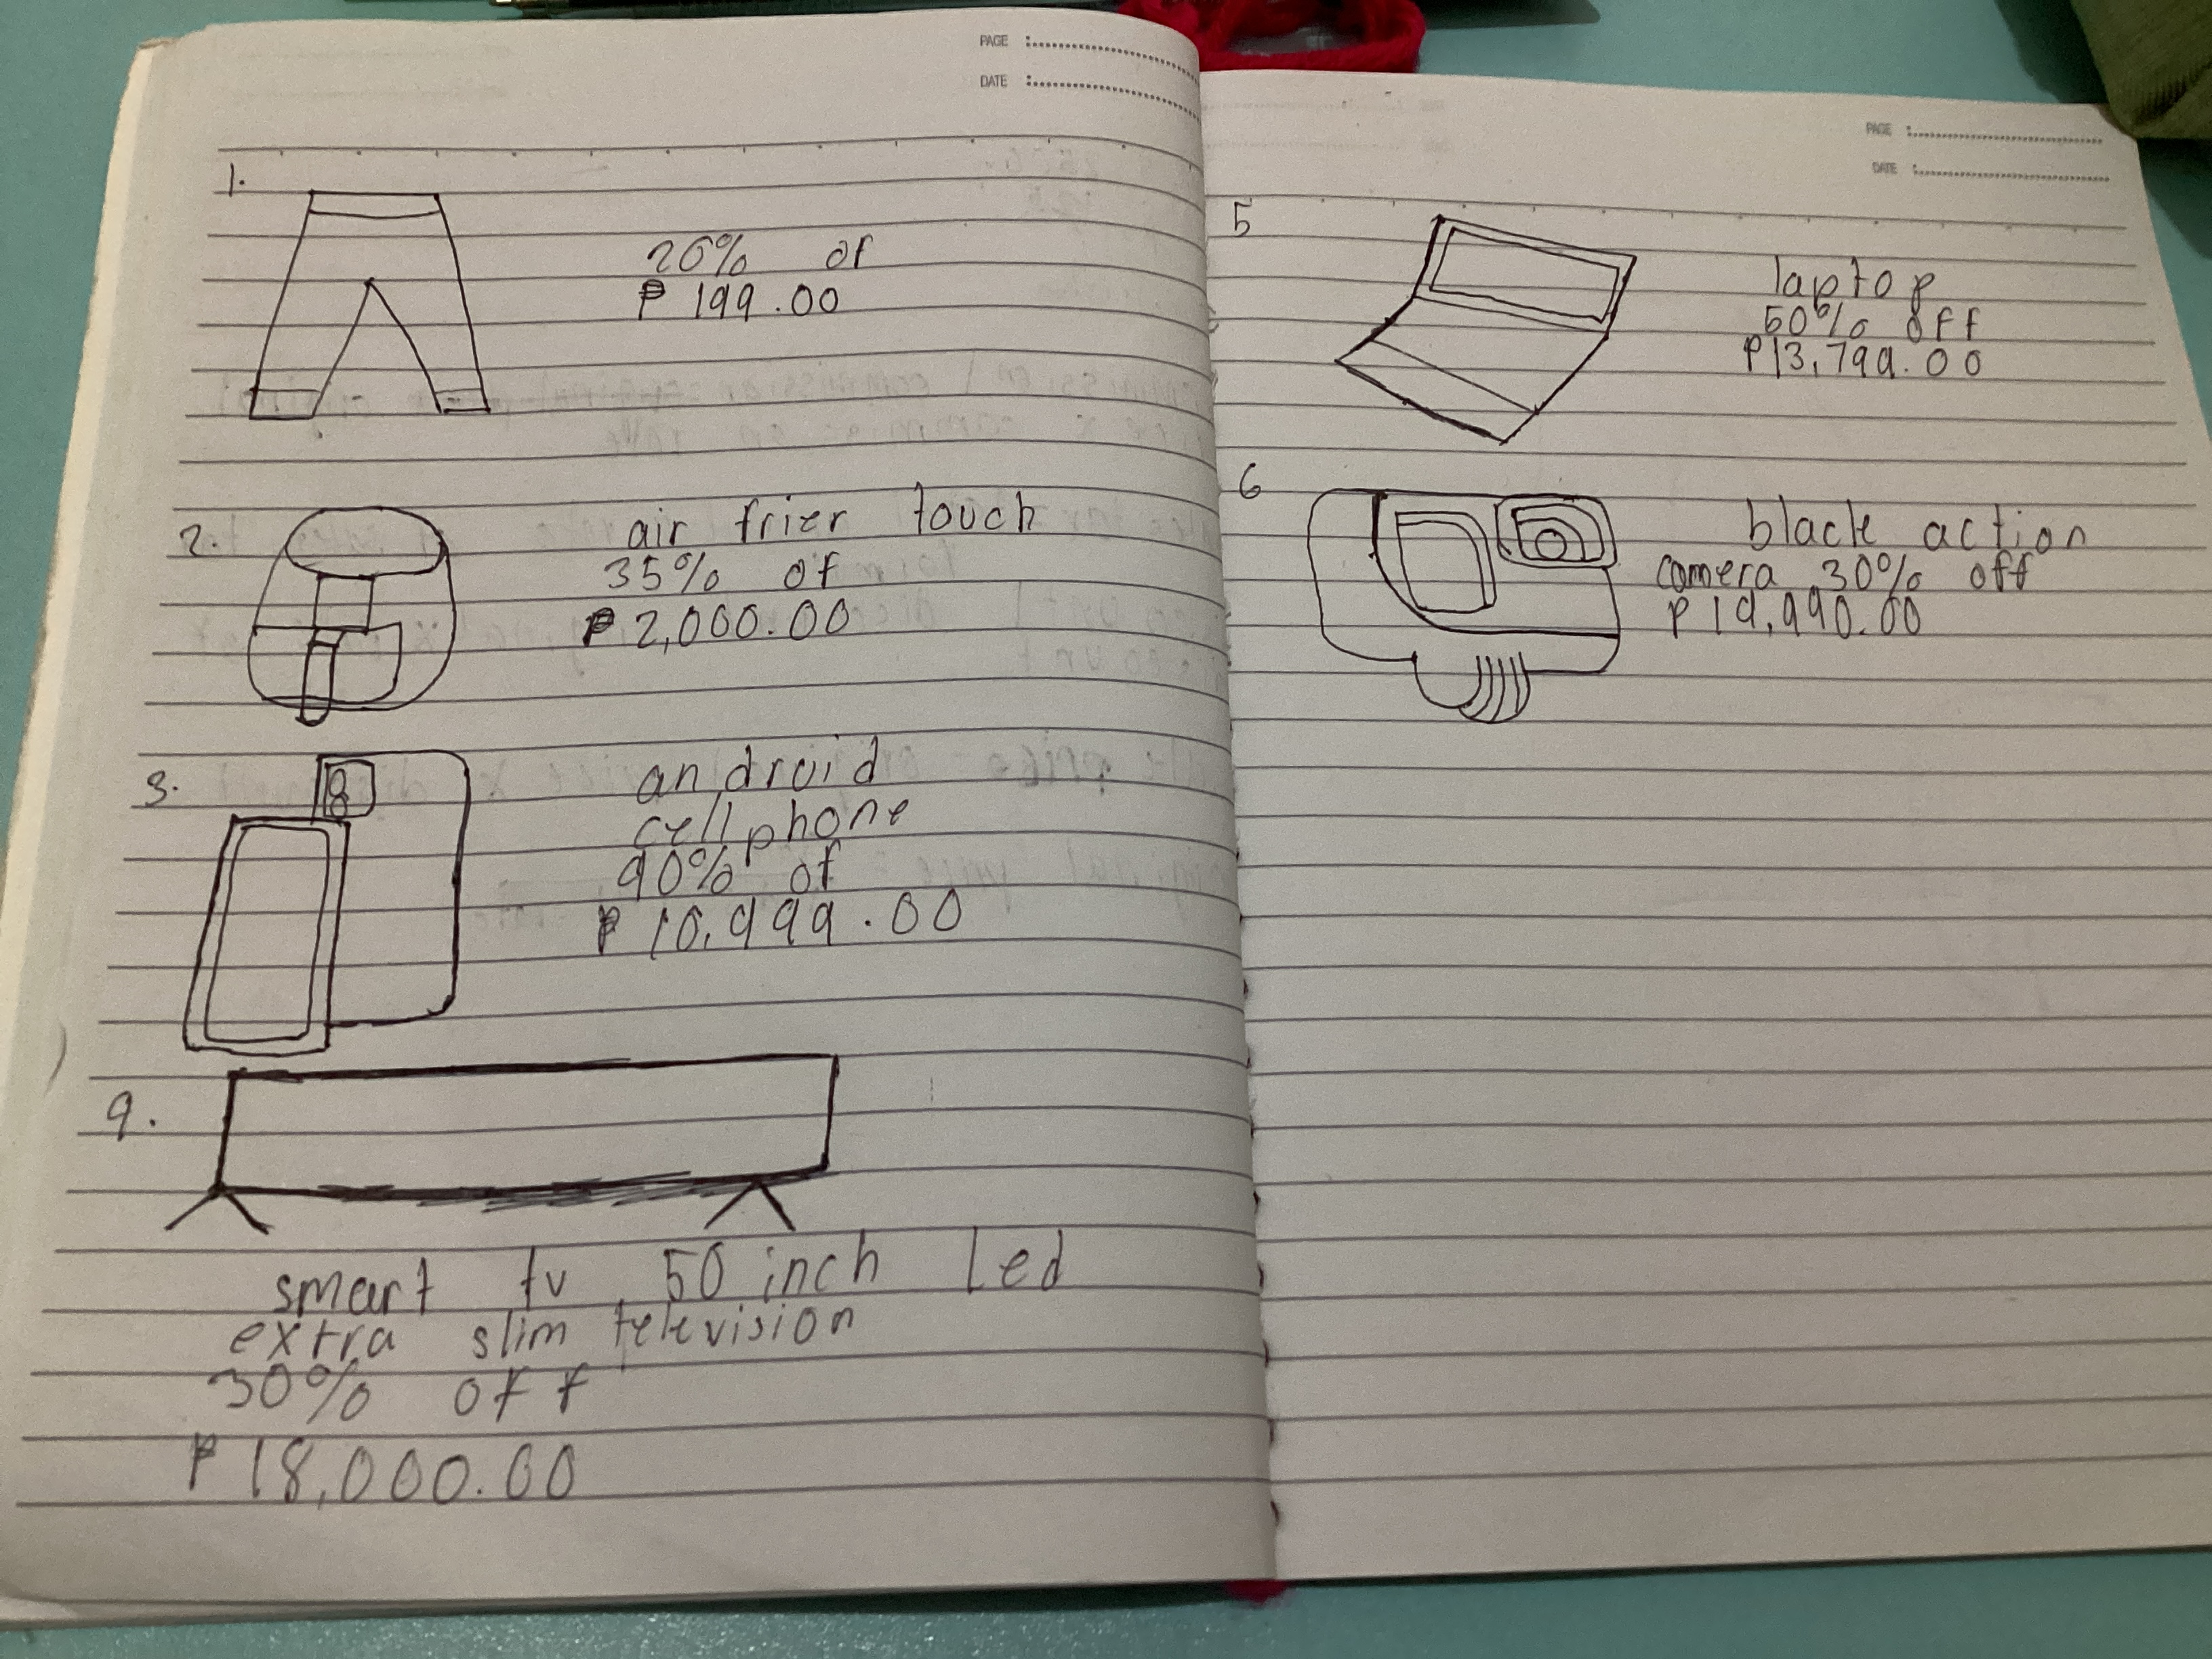 PAGE :
DATE :
1.
20% of
₱ 199.00
2.
air frier touch
35% of
₱ 2,000.00
3.
android
cellphone
40% of
₱ 10,999.00
4.
smart tv 50 inch Led
extra slim television
30% off
₱ 18,000.00
PAGE :
DATE :
5
laptop
50% off
₱13,799.00
6
black action
camera 30% off
₱ 19,990.00